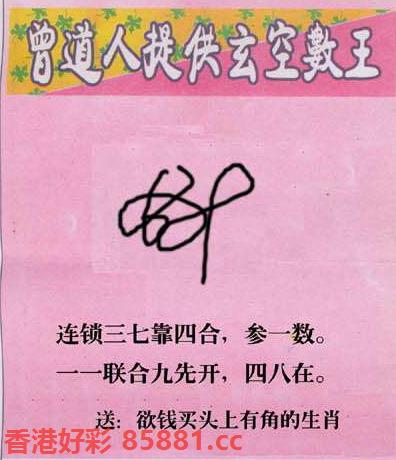 曾道人提供玄空數王
连锁三七靠四合，参一数。
一一联合九先开，四八在。
送：欲钱买头上有角的生肖
香港好彩 85881.cc